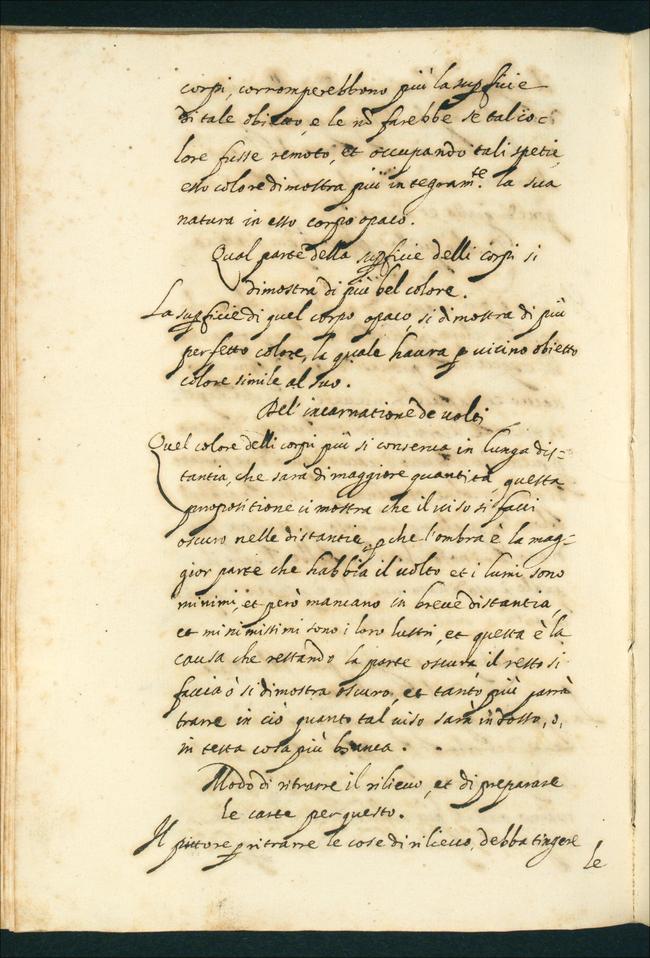 corpi, corromperebbono più la sup.ficie
di tale obietto, e le nõ farebbe se tal co-
lore fusse remoto, et occupando tali spetie
esso colore dimostra più integram.te la sua
natura in esso corpo opaco.
Qual parte della sup.ficie delli corpi si
dimostra di più bel colore.
La sup.ficie di quel corpo opaco, si dimostra di più
perfetto colore, la quale havra p vicino obietto
colore simile al suo.
Del' incarnatione de volti
Quel colore delli corpi più si conserva in lunga dis-
tantia, che sarà di maggiore quantità, questa
propositione ci mostra che il viso si facci
oscuro nelle distantie, p che l'ombra è la mag-
gior parte che habbia il volto et i lumi sono
minimi, et però mancano in breve distantia,
et minimissimi sono i loro lustri, et questa è la
causa che restando la parte oscura il resto si
faccia ò si dimostra oscuro, et tanto più parrà
trarre in ciò quanto tal viso sarà in dosso, o,
in testa cosa più bianca.
Modo di ritrarre il rilievo, et di preparare
le carte per questo.
Il pittore p ritrarre le cose di rilievo, debba tingere
le